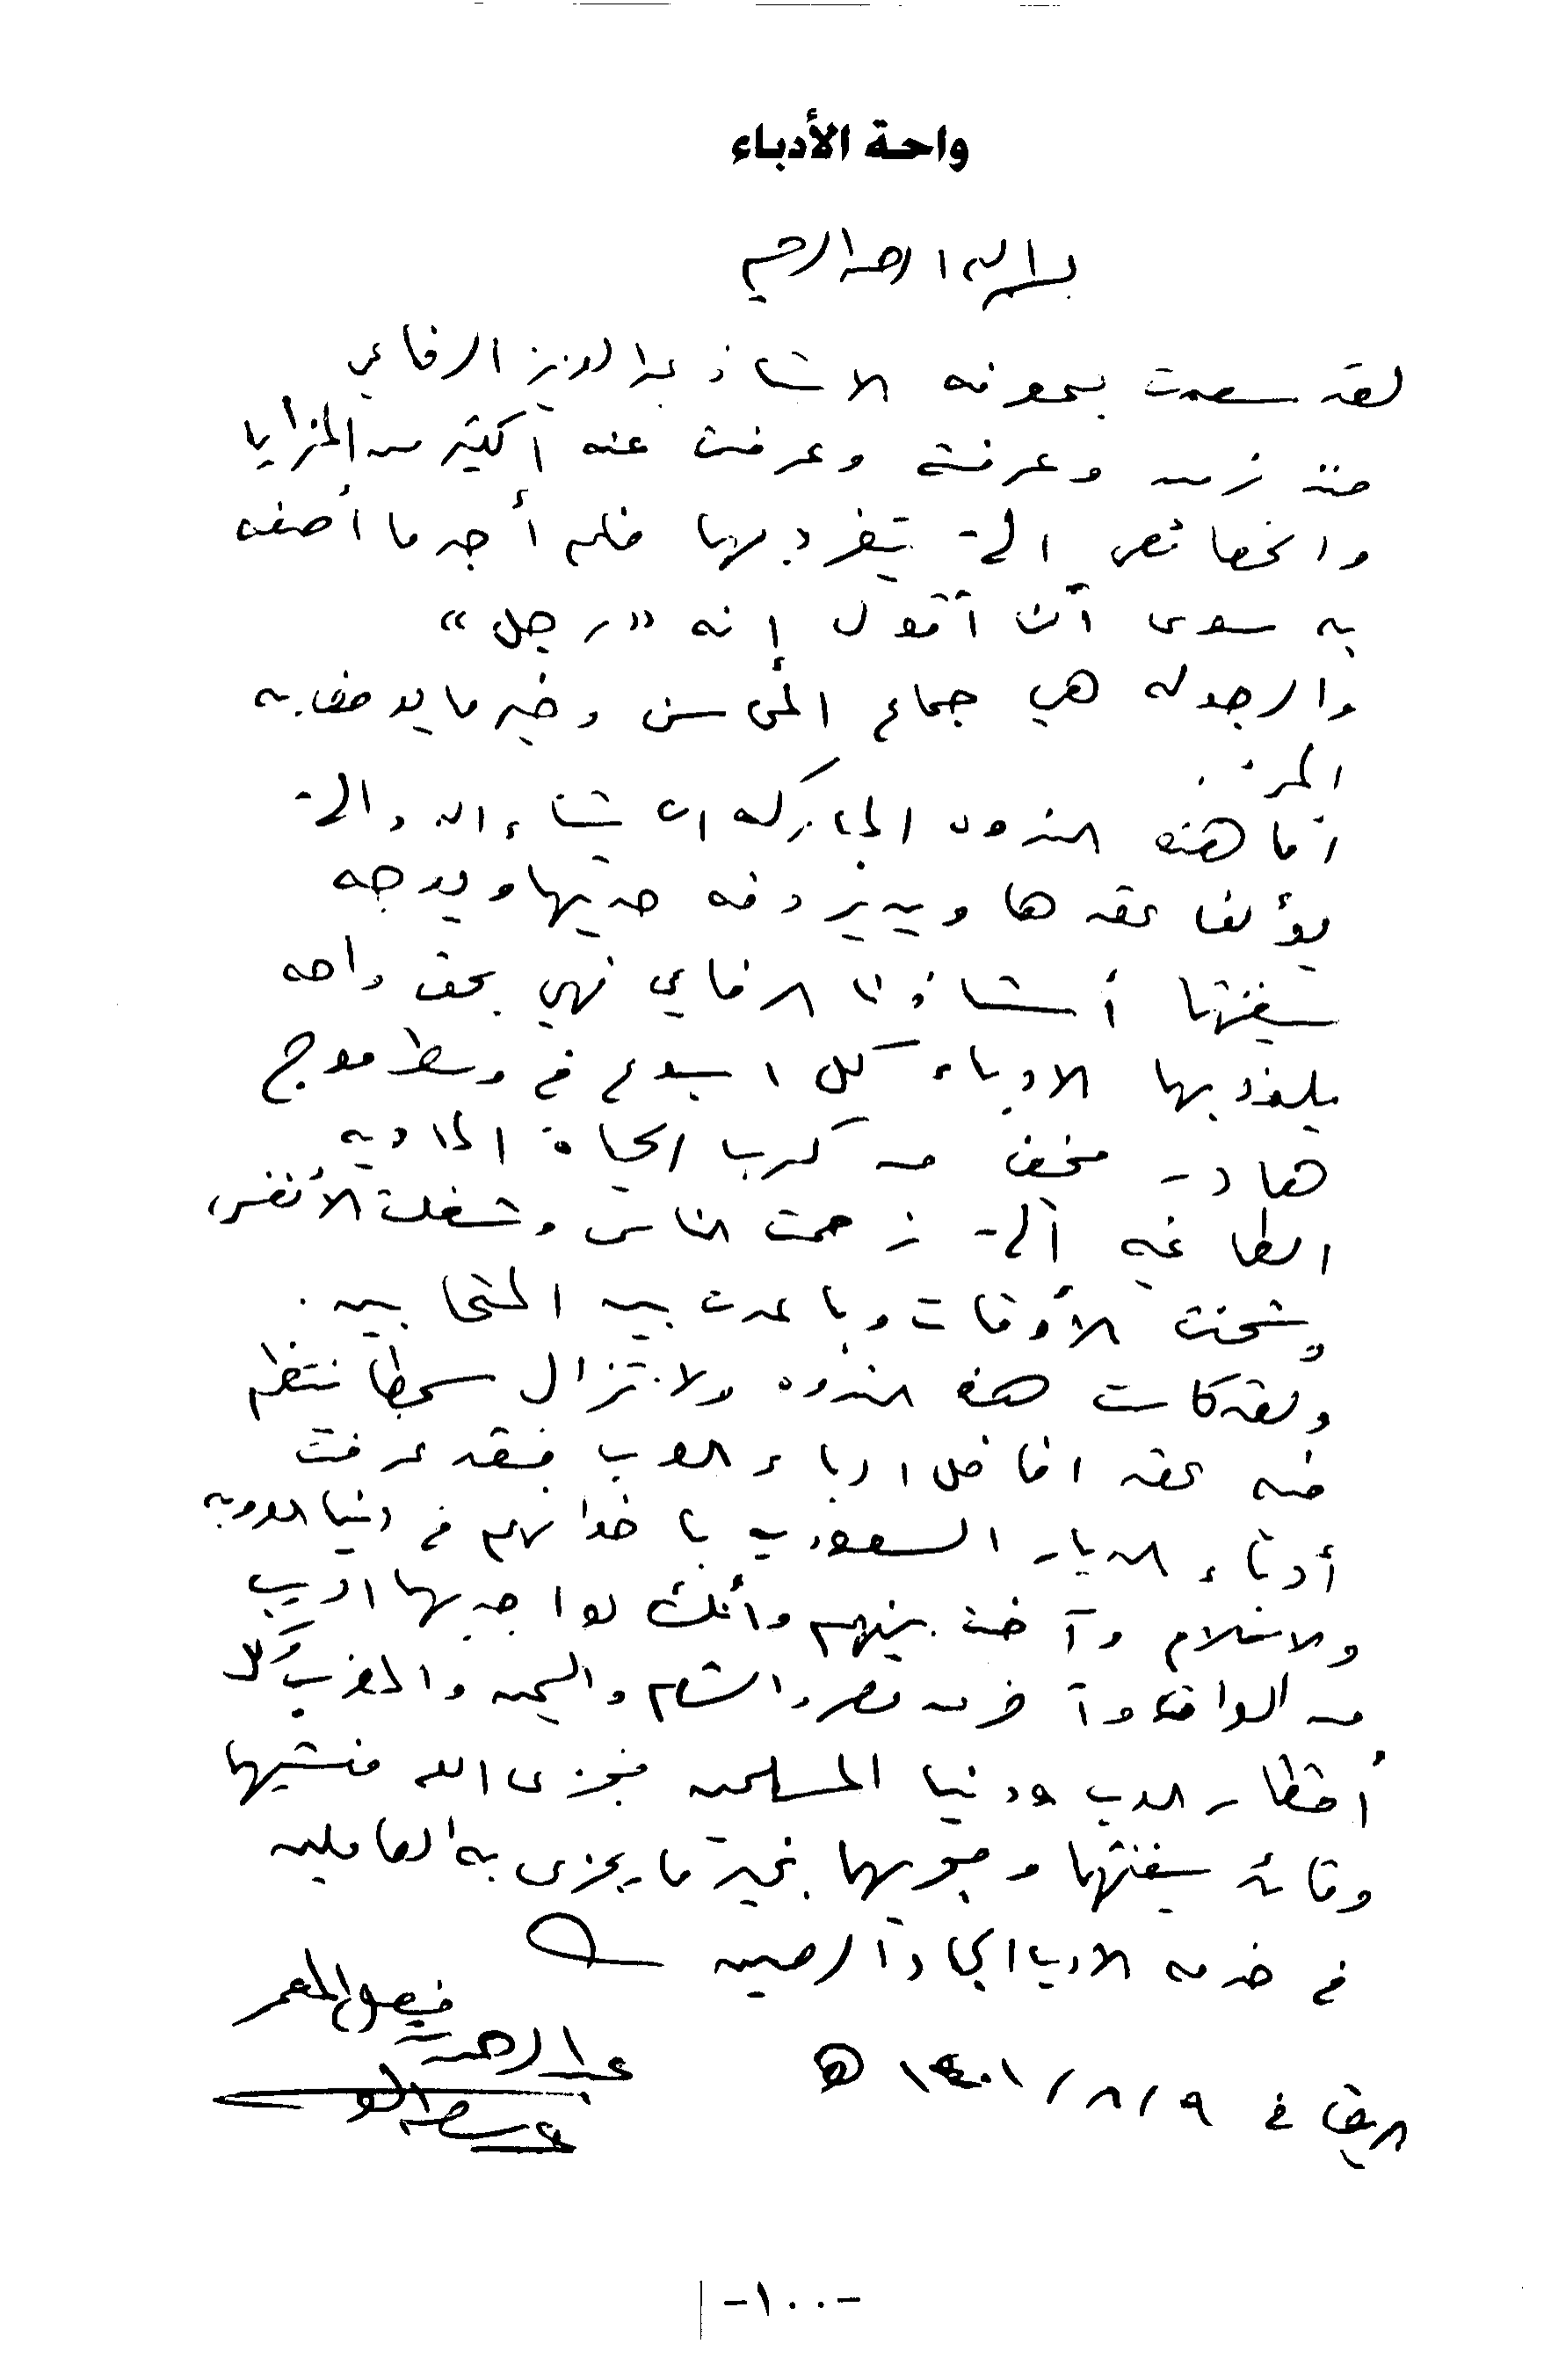 واحة الأدباء
بسم الله الرحمن الرحيم
لقد سعدت بمعرفة الاستاذ عبدالعزيز الرفاعي
منذ زمن وعرفته وعرفت عنه اكثير من المزايا
والخصائص التي يتفرد بها فلم أجد ما أصفه
به سوى أن أقول إنه «رجل»
والرجوله هي جماع المحاسن وخير ما يوصف به
المرء.
اما هذه الندوه المباركه ان شاء الله والتي
يؤلف عقدها ويدير دفة حديثها ويوجه
سفينتها أستاذنا الرفاعي فهي بحق واحه
يلوذ بها الادباء كل اسبوع في وسط موج
هادر مخفف من كرب الحياة الماديه
الطاغيه التي زحمت الناس وشغلت الأنفس
وشحنت الأوقات وباعدت بين المتحابين.
ولقد كانت هذه الندوه ولا تزال سمطا ينتظم
فيه عقد افاضل ادباء العرب فقد عرفت
أدباء الديار السعوديه باخوانهم في دنيا العروبه
والاسلام وآخت بينهم وأنك لواجد بها اديب
من العراق وآخر من مصر والشام واليمن والمغرب وكل
أقطار العرب ودنيا المسلمين فجزى الله منشيها
وقائد سفينتها وموجهها بخير ما يجزى به العاملين
في خدمه الادب الجاد الرصين
عبدالرحمن فيصل المعمر
الرياض في ٩/٨/١٤٠١ هـ
-١٠٠-